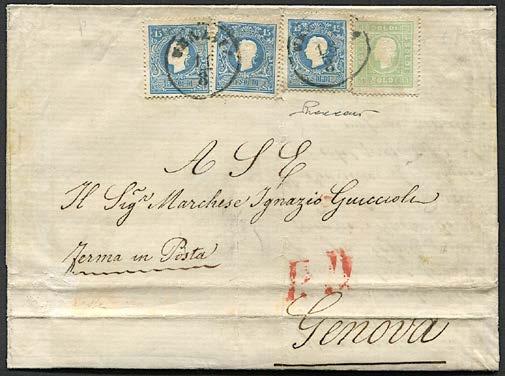 15 15 15
SOLDI SOLDI SOLDI
A S E
Il Sigr Marchese Ignazio Guiccioli
ferma in Posta
P.D
Genova